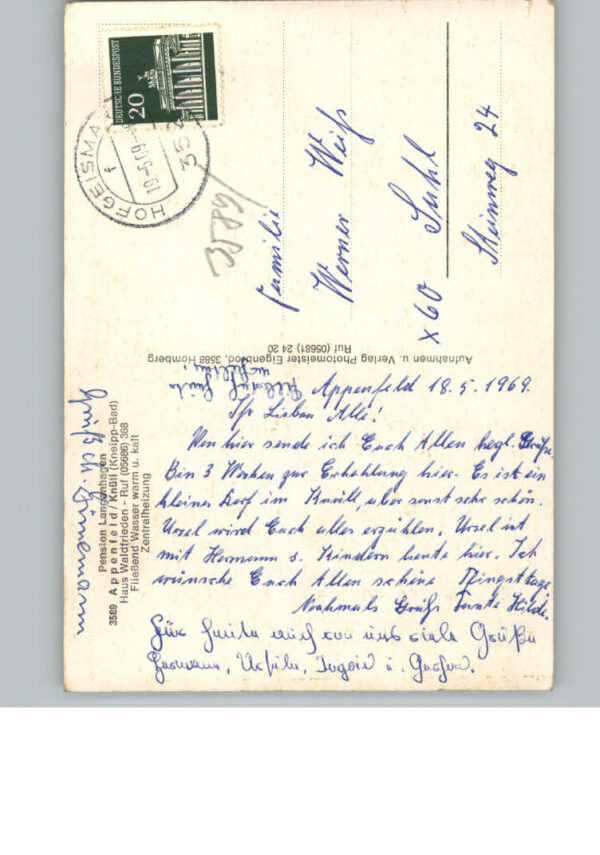 DEUTSCHE BUNDESPOST
20
HOFGEISMAR
f
352
3589/
Familie
Werner Weiß
x 60 Suhl
Steinweg 24
Aufnahmen u. Verlag Photomeister Eigenbrod, 3588 Homberg
Ruf (05681) 24 20
Pension Langenhagen
3589 Appenfeld/Knüll (Kneipp-Bad)
Haus Waldfrieden - Ruf (05686) 368
Fließend Wasser warm u. kalt
Zentralheizung
Appenfeld 18.5.1969.
Ihr Lieben Alle!
Von hier sende ich Euch Allen hzgl. Grüße.
Bin 3 Wochen zur Erhohlung hier. Es ist ein
kleines Dorf im Knüll, aber sonst sehr schön.
Ursel wird Euch alles erzählen. Ursel ist
mit Hermann u. Kindern heute hier. Ich
wünsche Euch Allen schöne Pfingsttage
Nochmals Gruß Tante Hilde.
Für heute auch von uns viele Grüße
Hermann, Ursula, Ingrid u.